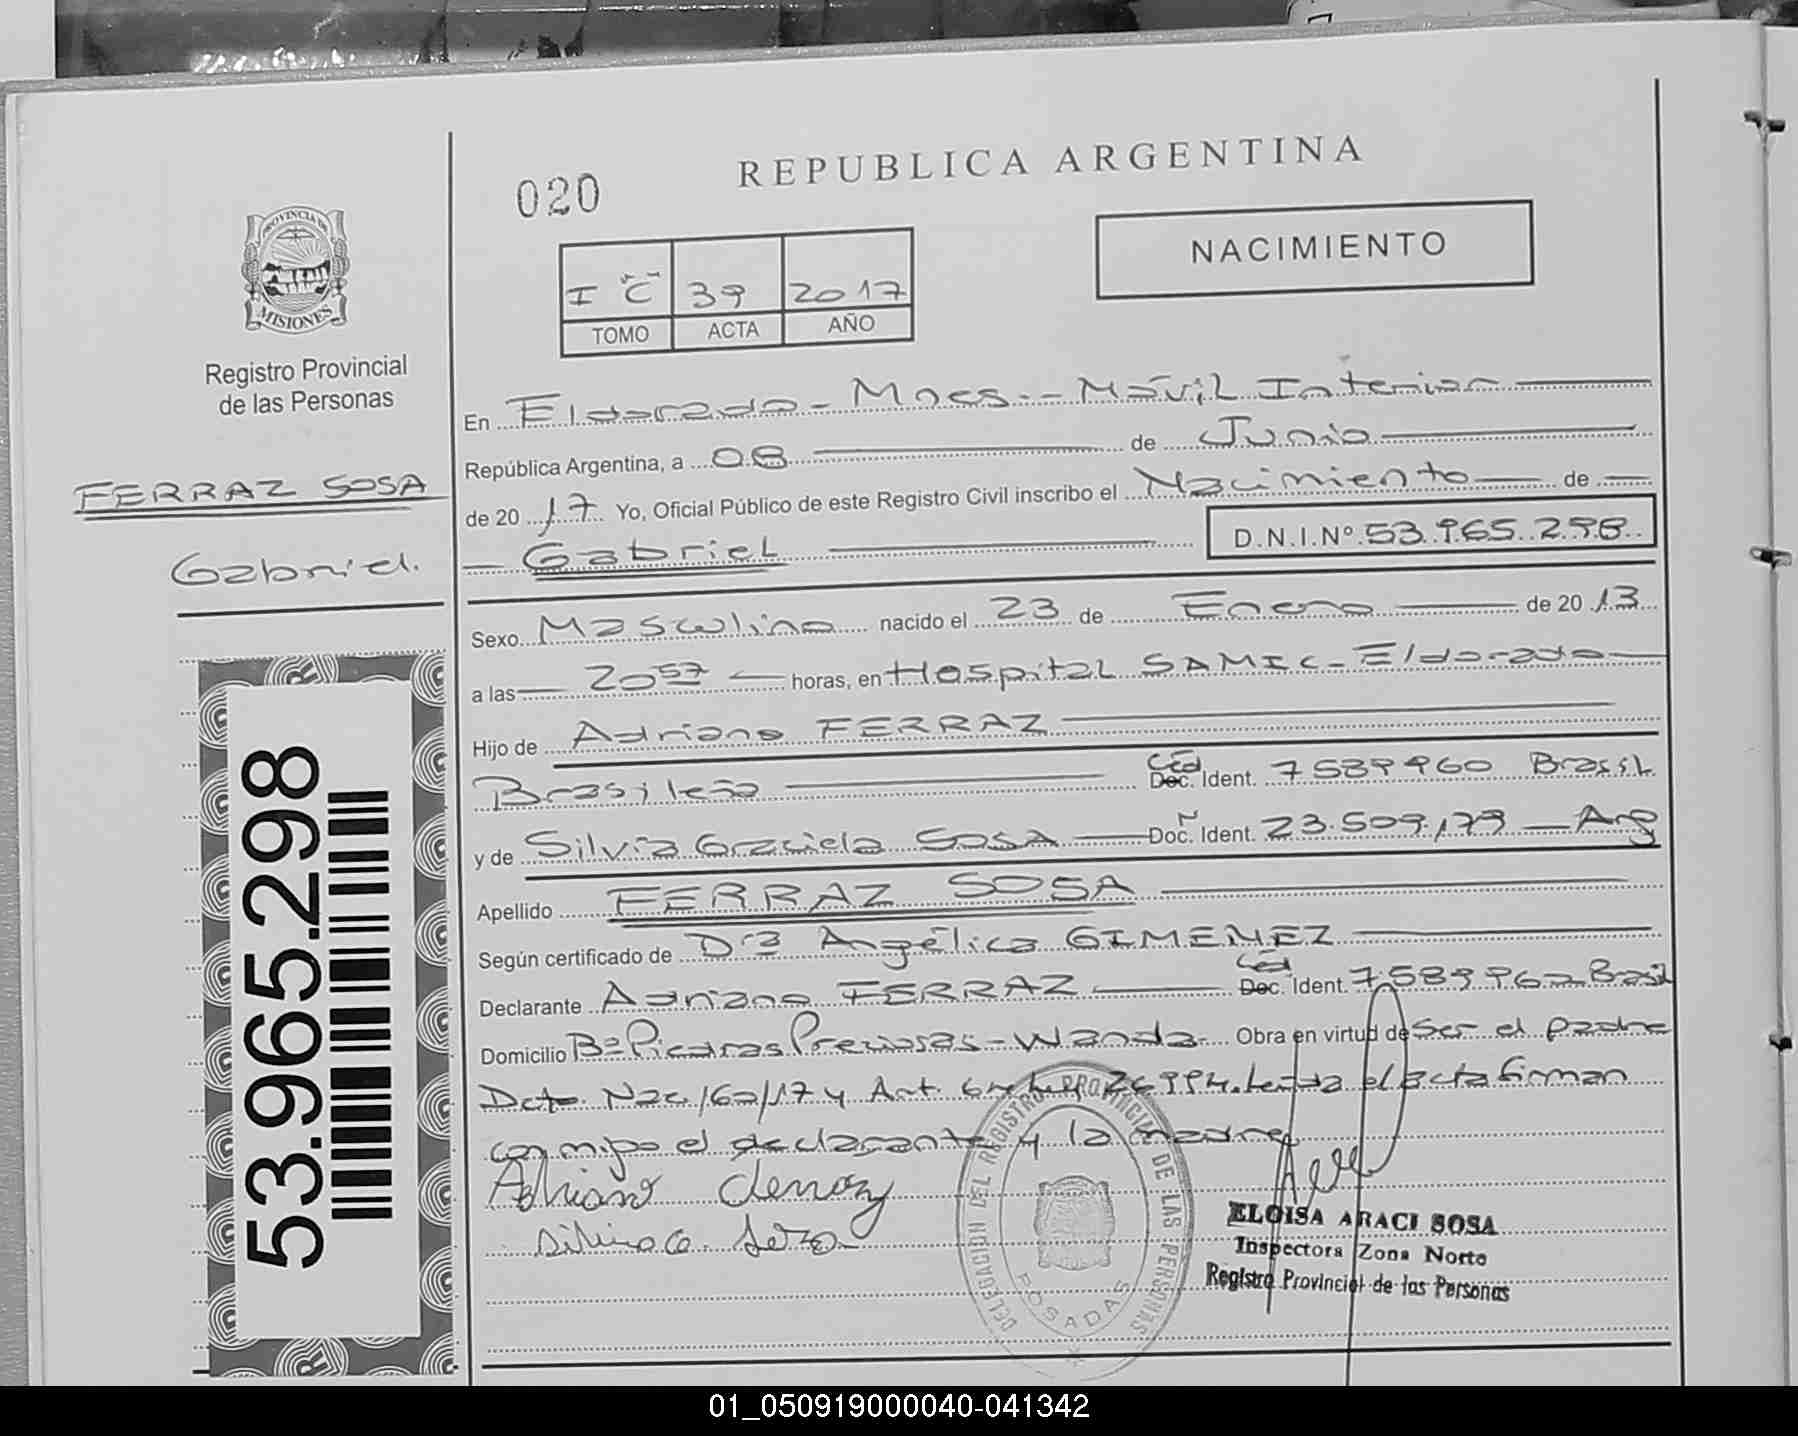 020
REPUBLICA ARGENTINA
NACIMIENTO
I C 39 2017
TOMO ACTA AÑO
PROVINCIA DE
MISIONES
Registro Provincial
de las Personas
FERRAZ SOSA
Gabriel.
53.965.298
En Eldorado - Mnes. - Móvil Interior
República Argentina, a 08 de Junio
de 2017 Yo, Oficial Público de este Registro Civil inscribo el Nacimiento de
Gabriel D.N.I.Nº 53.965.298
Sexo Masculino nacido el 23 de Enero de 2013
a las 20 57 horas, en Hospital SAMIC - Eldorado
Hijo de Adriano FERRAZ
Brasileño Céd Doc. Ident. 7589960 Brasil
y de Silvia Graciela SOSA Doc. Ident. 23.509.179 Arg
Apellido FERRAZ SOSA
Según certificado de Dra Angélica GIMENEZ
Declarante Adriano FERRAZ Céd Doc. Ident. Brasil
Domicilio Bº Piedras Preciosas - Wanda Obra en virtud de Ser el padre
Dcto. Nac. /17 y Art. 26994. Leída el acta firman
conmigo el declarante y la madre
Adriano
Silvia G. Soza
DELEGACION DEL REGISTRO PROVINCIAL DE LAS PERSONAS
POSADAS
ELOISA ARACI SOSA
Inspectora Zona Norte
Registro Provincial de las Personas
01_050919000040-041342